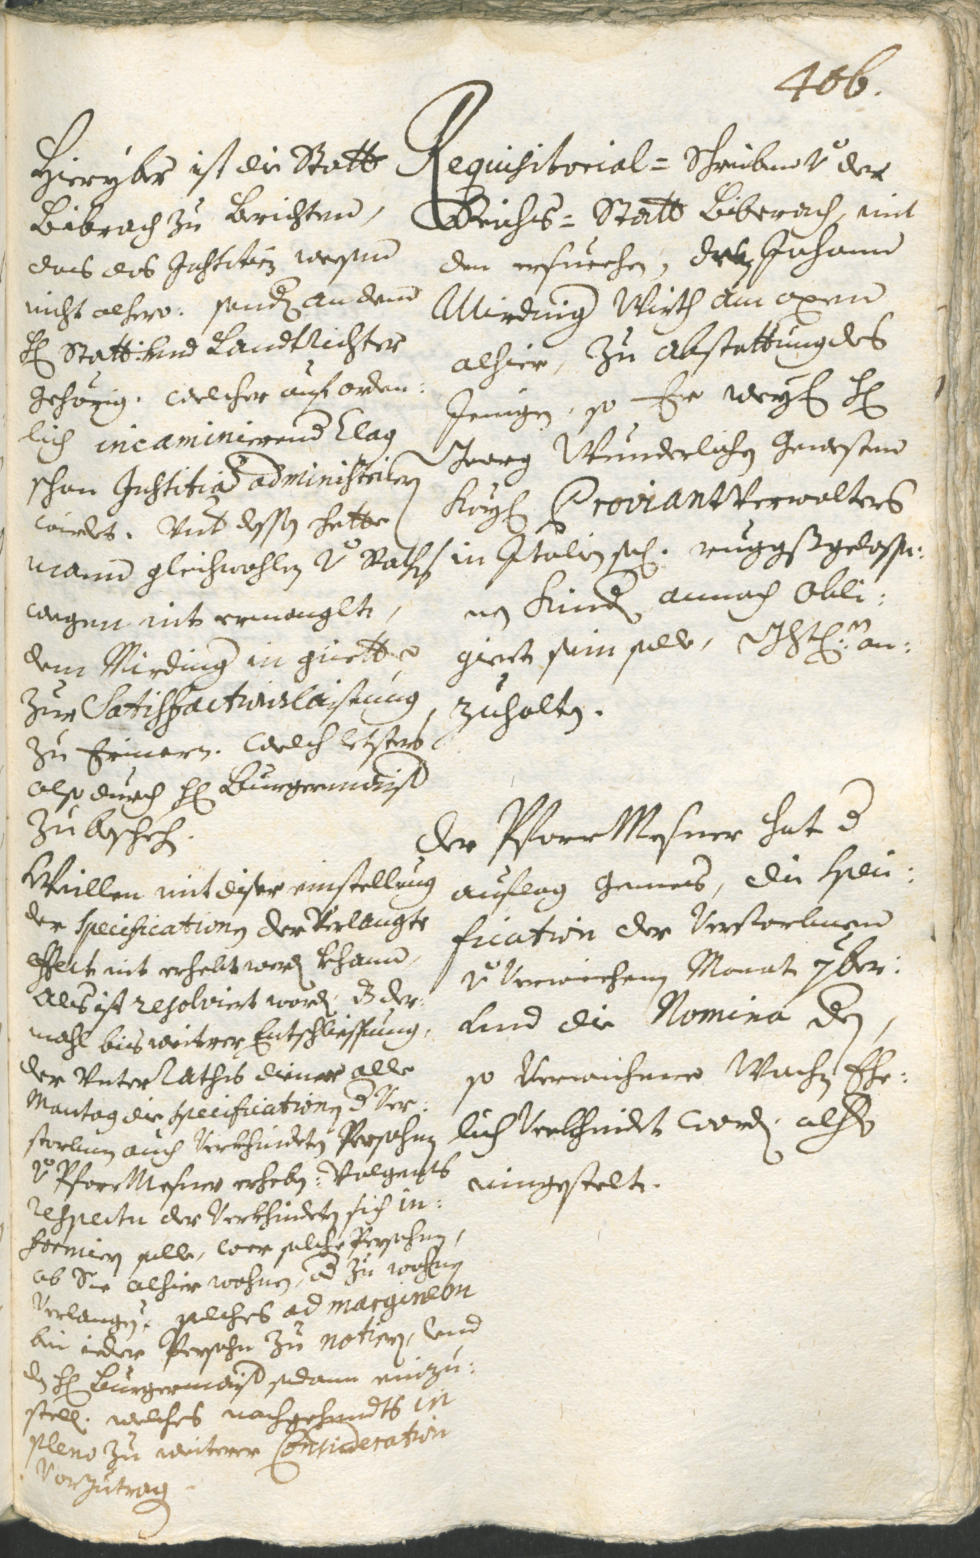 406.
Requisitorial= Schreiben v der
Reichs= Statt Biberach, mit
den ersuechen, den Johann
Mirding Wirth am oxen
alhier, zu Abstattung des
Jenigen, so Er weyl H
Georg Wunderlichs gewesten
Kayl Proviantverwalters
in Italien sel. ruggßgelasse:
nen Kind annoch obli:
giert sein solle, an:
zuhalten.
Hieryber ist die Statt
Bibrach zu berichten,
das das Justitien wesen
nicht alhero: sond an dem
H Statt: und Landtrichter
gehörig. welcher auf orden:
lich incaminierend Clag
schon Justitia administrieren
wirdet. Unt dessen hette
mann gleichwohlen v Raths
wegen nit ermanglt,
dem Mirding in güette
zur Satisfactionslaistung,
zu Erinern. welch letsters
also durch H Burgermaist
zu beschech.
Der Pfarr Mesner hat d
auflag gemess, die speci:
fication der Verstorbnen
v verwichnen Monat 7ber:
und die Nomina den,
so verwichene Wochen Ehe:
lich verkhindt word, alhero
eingestelt.
Weillen mit diser einstellung
der specificationen der verlangte
effect nit erhebt werd khann,
Als ist resolviert word, dz der:
mahl bis weitrer Entschliessung,
der Unter Raths diener alle
Montag die specificationen d Ver:
storbnen auch verkhindeten Persohnen
v Pfarr Mesner erheben: volgents
respectu der verkhindeten sich in:
formiern solle, wer solche Persohnen,
ob Sie alhier wohnen, od zu wohnen
verlangen, solches ad marginem
bei ieder Persohn zu notiern, und
den H Burgermaist sodann einzu:
stell. welches nachgehendts in
pleno zu weiterer Consideration
vorzutragen.